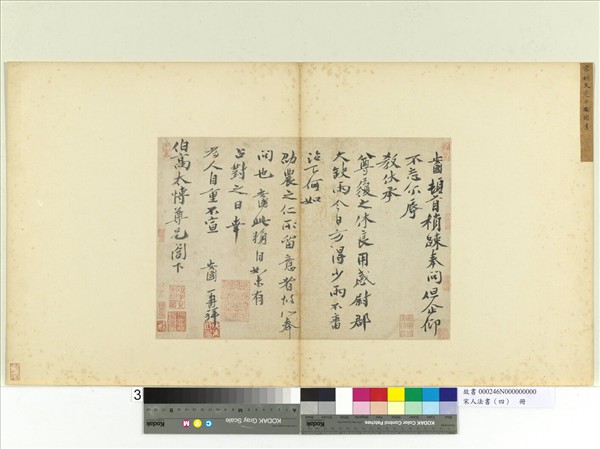 頓首積疎奉問但企仰
不忘尔辱
教休承
尊履之休良用感尉郡
大缺雨今日方得少雨不審
治下何如
勸農之仁所留意者故以奉
問也 此猶目如未有
占對之日幸
為人自重不宣
再拜
伯高太博尊兄閣下
3
KODAK Gray Scale
KODAK Color Control Patches
故書 000246N000000000
宋人法書（四） 冊